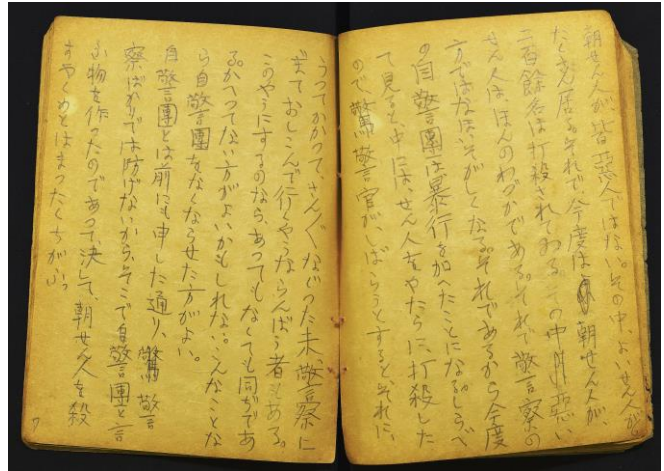 朝せん人が皆悪人ではない。その中、よいせん人が
たくさん居る。それで、今度は朝せん人が、
二百餘名は打殺されてゐる。その中悪い
せん人は、ほんのわづかである。それで警察の
方ではなほいそがしくなる。それであるから今度
の自警團は暴行を加へたことになる。しらべ
て見ると中には、せん人をやたらに、打殺した
ので、警官が、しばらうとすると、それに、
うつてかかつて、さんぐなぐつた末、警察に
まておしこんで行くやうならんばう者もある。
このやうにするのなら、あつてもなくても同ぢであ
る。かへつてない方がよいかもしれない。こんなことな
ら自警團をなくならせた方がよい。
自警團とは前にも申した通り、警
察ばかりでは防げないから、そこで自警團と言
ふ物を作つたのであつて、決して、朝せん人を殺
すやくめとはまつたくちがふ。
7